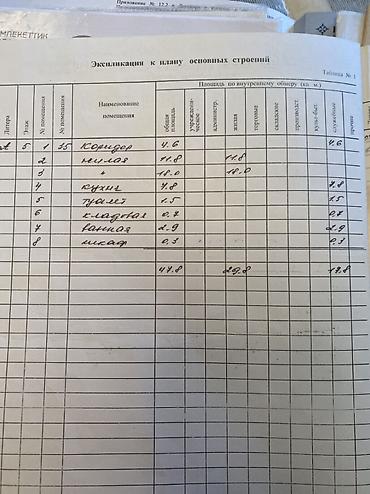 Приложение № 12.2
МПЕКЕТТІК
Экспликация к плану основных строений
Таблица № 1
Литера Этаж № помещения № помещения Наименование помещения Площадь по внутреннему обмеру (кв. м.)
общая площадь учрежденческое администр. жилая торговые складские производст. культ-быт. служебные прочие
А 5 1 35 Коридор 4.6 4.6
2 жилая 11.8 11.8
3 " 18.0 18.0
4 кухня 7.8 7.8
5 туалет 1.5 1.5
6 кладовая 0,7 0,7
7 ванная 2.9 2.9
8 шкаф 0,3 0,3
47.8 29.8 17.8